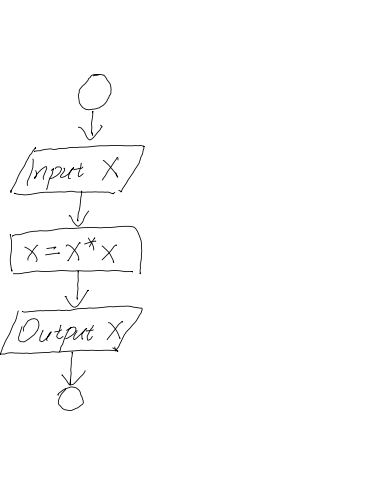 Input X
X=X*X
Output X